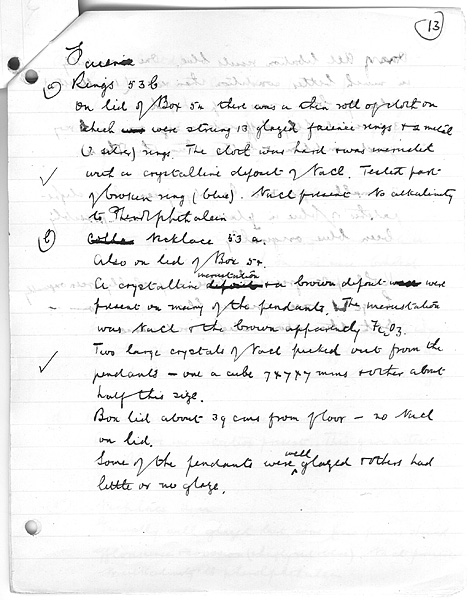 13
Faience
(a) Rings 53b
On lid of Box 54 there was a thin roll of cloth on
which were strung 13 glazed faience rings + 2 metal
(? silver) rings. The cloth was hard + was incrusted
with a crystalline deposit of NaCl. Tested part
of broken ring (blue). NaCl present. No alkalinity
to Phenolphthalein
(b) Necklace 53 a.
Also on lid of Box 54.
A crystalline incrustation + a brown deposit were
present on many of the pendants. The incrustation
was NaCl + the brown apparently Fe2O3.
Two large crystals of NaCl picked out from the
pendants – one a cube 7x7x7 mms + other about
half this size.
Box lid about 39 cms from floor – no NaCl
on lid.
Some of the pendants were well glazed + others had
little or no glaze.